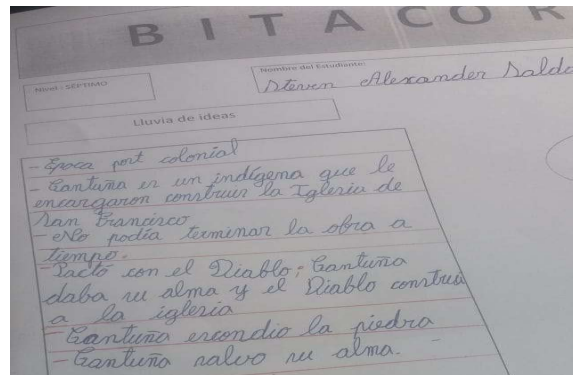 BITACOR
Nivel: SEPTIMO
Nombre del Estudiante:
Steven Alexander Salda
Lluvia de ideas
- Epoca post colonial
- Cantuña es un indígena que le
encargaron construir la Iglesia de
San Francisco
- No podía terminar la obra a
tiempo.
- Pactó con el Diablo; Cantuña
daba su alma y el Diablo construí
a la iglesia
- Cantuña escondio la piedra
- Cantuña salvo su alma.